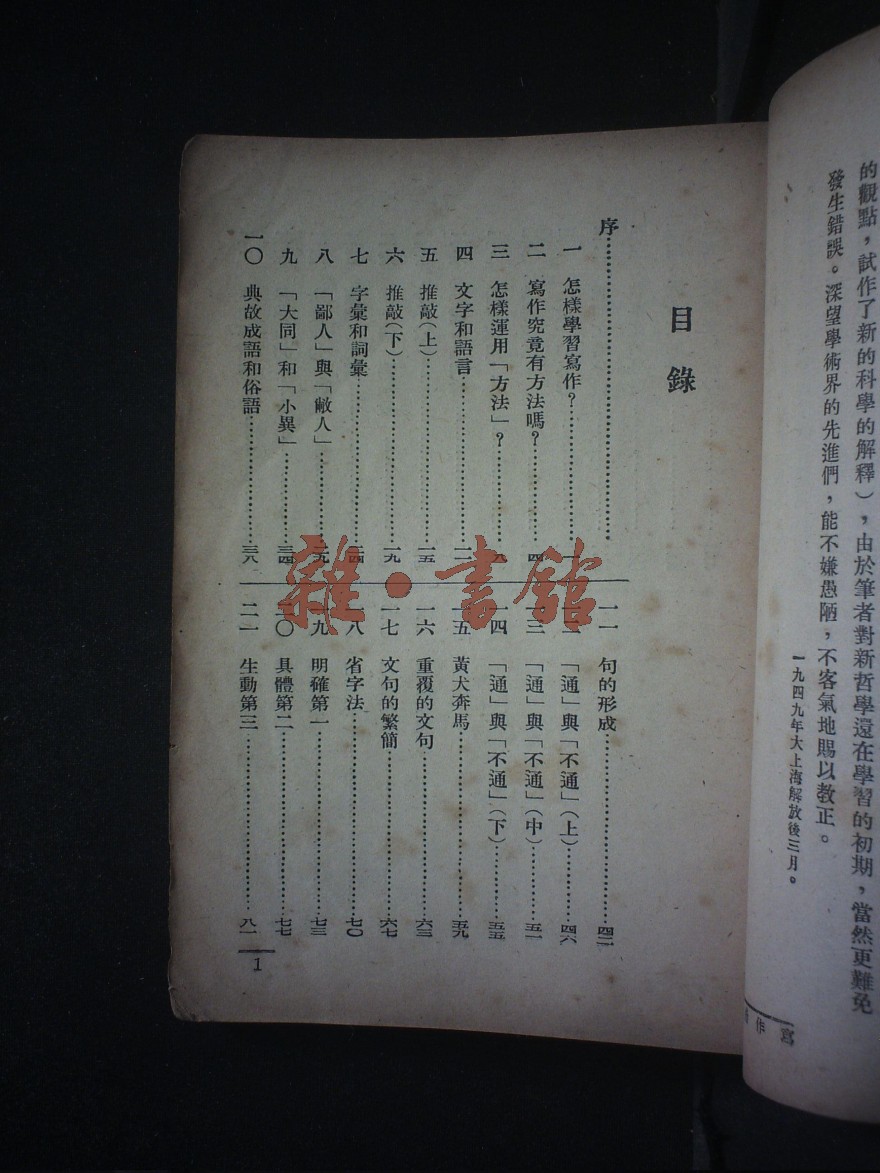 的觀點，試作了新的科學的解釋），由於筆者對新哲學還在學習的初期，當然更難免
發生錯誤。深望學術界的先進們，能不嫌愚陋，不客氣地賜以教正。
一九四九年大上海解放後三月。
寫作
目錄
序
一 怎樣學習寫作？ 一
二 寫作究竟有方法嗎？ 四
三 怎樣運用「方法」？
四 文字和語言 一二
五 推敲（上） 一五
六 推敲（下） 一九
七 字彙和詞彙 二四
八 「鄙人」與「敝人」 二九
九 「大同」和「小異」 三四
一〇 典故成語和俗語 三八
一一 句的形成 四二
一二 「通」與「不通」（上） 四六
一三 「通」與「不通」（中） 五一
一四 「通」與「不通」（下） 五五
一五 黃犬奔馬 五九
一六 重覆的文句 六三
一七 文句的繁簡 六七
一八 省字法 七〇
一九 明確第一 七三
二〇 具體第二 七七
二一 生動第三 八一
1
雜·書館